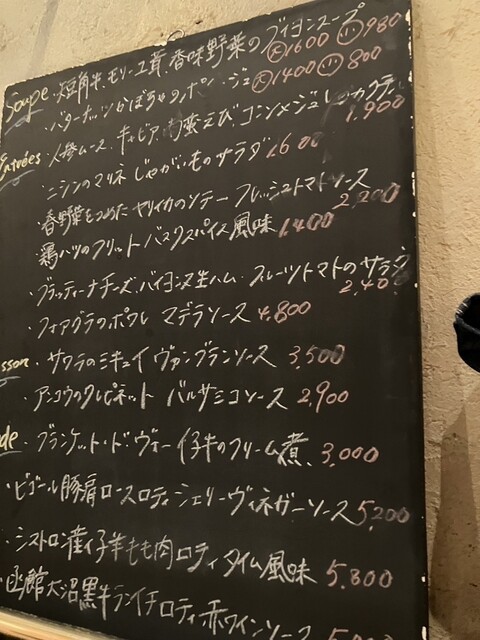 Soupe・短角牛、モリーユ茸、香味野菜のブイヨンスープ
大1600 小980
・バターナッツかぼちゃのポタージュ 大1400 小800
Entrées・人参ムース、キャビア、内蔵えび、コンソメジュレ
1,900
・ニシンのマリネ じゃがいものサラダ 1,600
・春野菜をつめたヤリイカのソテー フレッシュトマトソース
2,200
鶏ハツのフリット バスクスパイス風味 1,400
・ブラッティーナチーズ、バイヨンヌ生ハム、フルーツトマトのサラダ
2,40
・フォアグラのポワレ マデラソース 4,800
sson・サワラのミキュイ ヴァンブランソース 3,500
・アンコウのクレピネット バルサミコソース 2,900
de・ブランケット・ド・ヴォー 仔牛のクリーム煮 3,000
・ビゴール豚肩ロースロティ シェリーヴィネガーソース 5,200
・シストロン産仔羊もも肉ロティ タイム風味 5,800
・函館大沼黒牛ランイチロティ 赤ワインソース